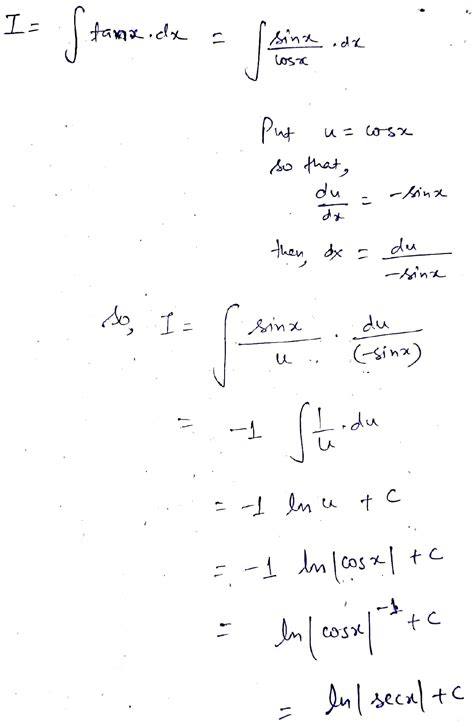 I = ∫ tanx.dx = ∫ sinx/cosx .dx
Put u = cosx
so that,
du/dx = -sinx
then, dx = du/-sinx
so, I = ∫ sinx/u . du/(-sinx)
= -1 ∫ 1/u .du
= -1 ln u + C
= -1 ln|cosx| + C
= ln|cosx|^-1 + C
= ln|secx| + C